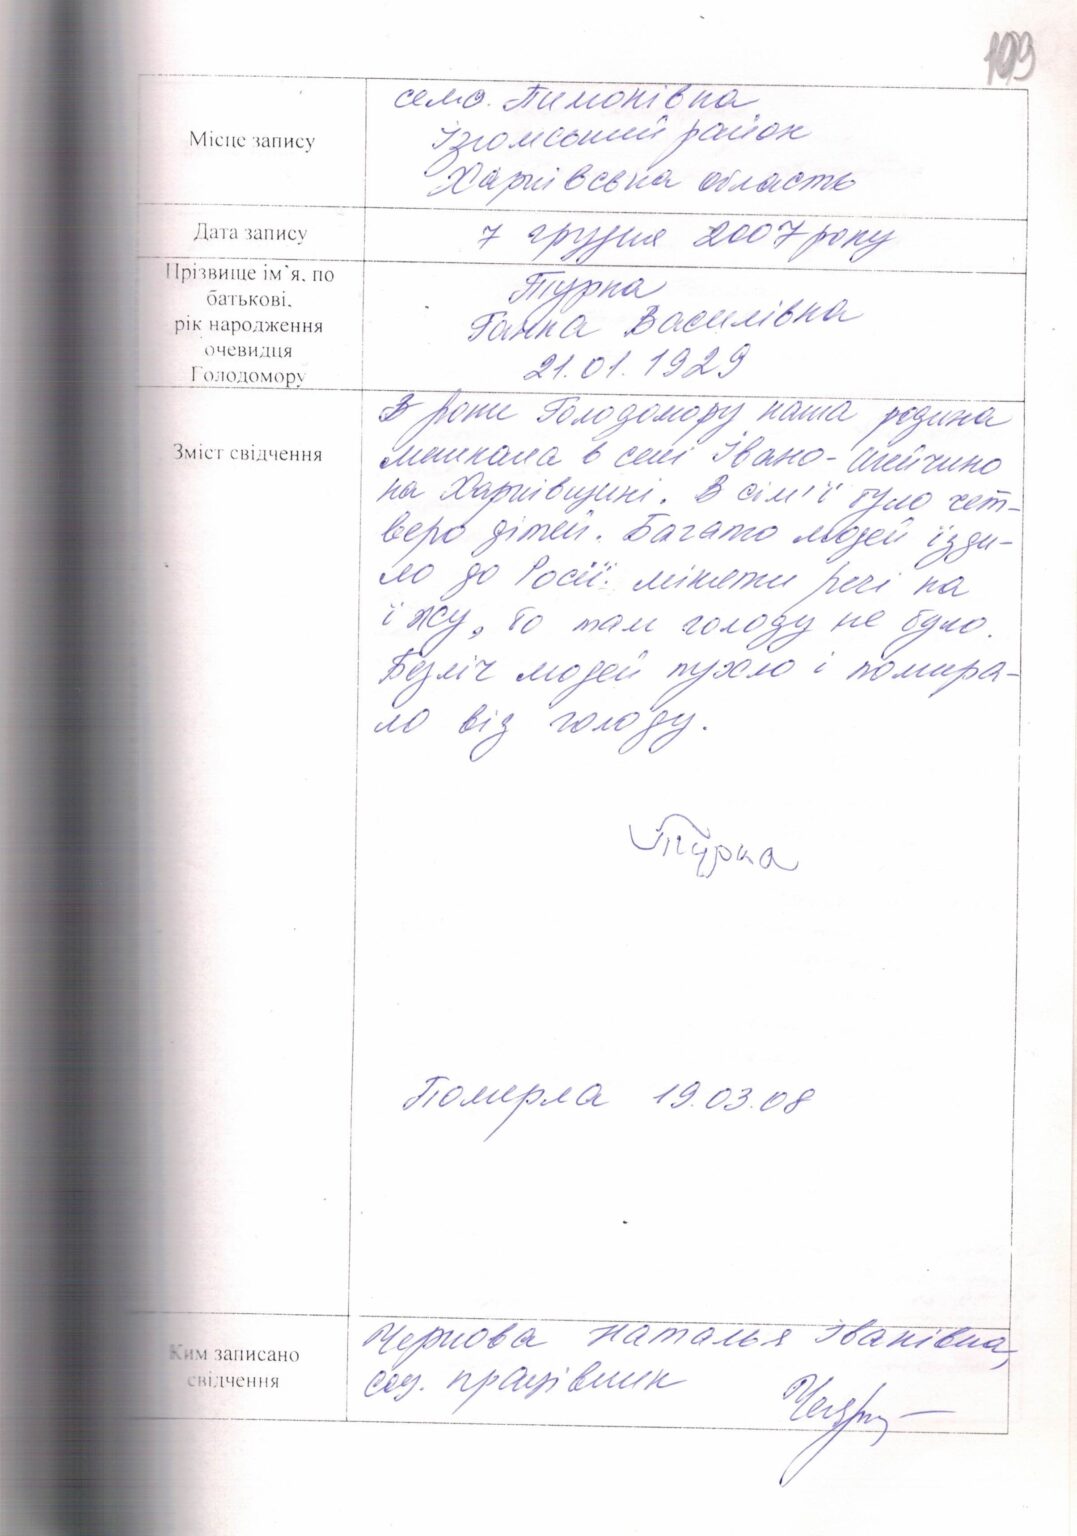 109
Місце запису
село. Пимонівка
Ізюмський район
Харківська область
Дата запису
7 грудня 2007 року
Прізвище ім`я, по
батькові,
рік народження
очевидця
Голодомору
Турка
Ганна Василівна
21.01.1929
Зміст свідчення
В роки Голодомору наша родина
мешкала в селі Івано-Шейчино
на Харківщині. В сім'ї було чет-
веро дітей. Багато людей їзди-
ло до Росії міняти речі на
їжу, бо там голоду не було.
Безліч людей пухло і помира-
ло від голоду.
Турка
Померла 19.03.08
Ким записано
свідчення
Чернова Наталья Іванівна,
соц. працівник